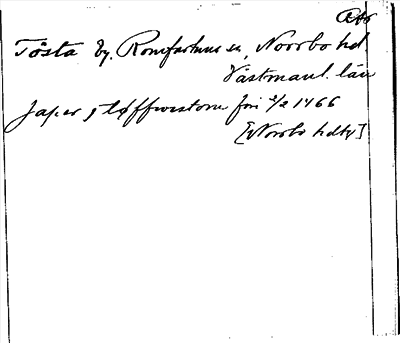 Tösta by, Romfartuna sn, Norrbo hd
Västmanl. län
Jap er j tøffwestom fri 2/2 1466
[Norrbo hdtg]